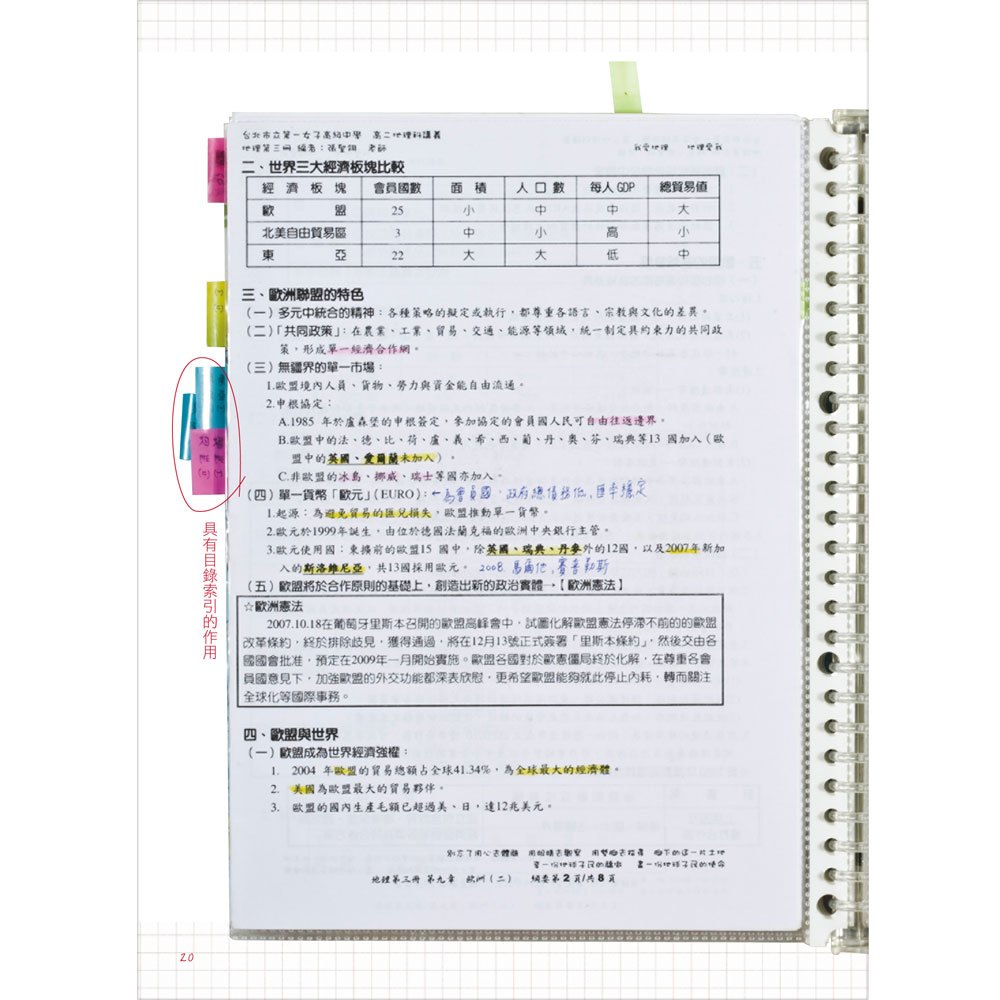 台北市立第一女子高級中學　高二地理科講義
地理第三冊 編者：張聖翎　老師　我愛地理　地理愛我
二、世界三大經濟板塊比較
經濟板塊 會員國數 面積 人口數 每人 GDP 總貿易值
歐盟 25 小 中 中 大
北美自由貿易區 3 中 小 高 小
東亞 22 大 大 低 中
三、歐洲聯盟的特色
(一) 多元中統合的精神：各種策略的擬定或執行，都尊重各語言、宗教與文化的差異。
(二)「共同政策」：在農業、工業、貿易、交通、能源等領域，統一制定具約束力的共同政
策，形成單一經濟合作網。
(三) 無疆界的單一市場：
1.歐盟境內人員、貨物、勞力與資金能自由流通。
2.申根協定：
A.1985 年於盧森堡的申根簽定，參加協定的會員國人民可自由往返邊界。
B.歐盟中的法、德、比、荷、盧、義、希、西、葡、丹、奧、芬、瑞典等13 國加入（歐
盟中的英國、愛爾蘭未加入）。
C.非歐盟的冰島、挪威、瑞士等國亦加入。
(四) 單一貨幣「歐元」(EURO)：←為會員國，政府總債務低，匯率穩定
1.起源：為避免貿易的匯兌損失，歐盟推動單一貨幣。
2.歐元於1999年誕生，由位於德國法蘭克福的歐洲中央銀行主管。
3.歐元使用國：東擴前的歐盟15 國中，除英國、瑞典、丹麥外的12國，以及2007年新加
入的斯洛維尼亞，共13國採用歐元。 2008 馬爾他，賽普勒斯
(五) 歐盟將於合作原則的基礎上，創造出新的政治實體→【歐洲憲法】
☆歐洲憲法
2007.10.18在葡萄牙里斯本召開的歐盟高峰會中，試圖化解歐盟憲法停滯不前的的歐盟
改革條約，終於排除歧見，獲得通過，將在12月13號正式簽署「里斯本條約」，然後交由各
國國會批准，預定在2009年一月開始實施。歐盟各國對於歐憲僵局終於化解，在尊重各會
員國意見下，加強歐盟的外交功能都深表欣慰，更希望歐盟能夠就此停止內耗，轉而關注
全球化等國際事務。
四、歐盟與世界
(一) 歐盟成為世界經濟強權：
1. 2004 年歐盟的貿易總額占全球41.34%，為全球最大的經濟體。
2. 美國為歐盟最大的貿易夥伴。
3. 歐盟的國內生產毛額已超過美、日，達12兆美元。
別忘了用心去體驗　用眼睛去觀察　用雙腳去探尋　腳下的這一片土地
盡一份地球子民的使命
地理第三冊 第九章　歐洲(二)　綱要第2頁/共8頁
具有目錄索引的作用
20